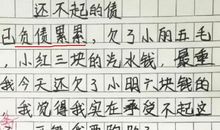 还不起的债
已负债累累，欠了小丽五毛
，小红三块的汽水钱，最重
我今天还欠了小明六块钱的
我觉得我实在承受不起这